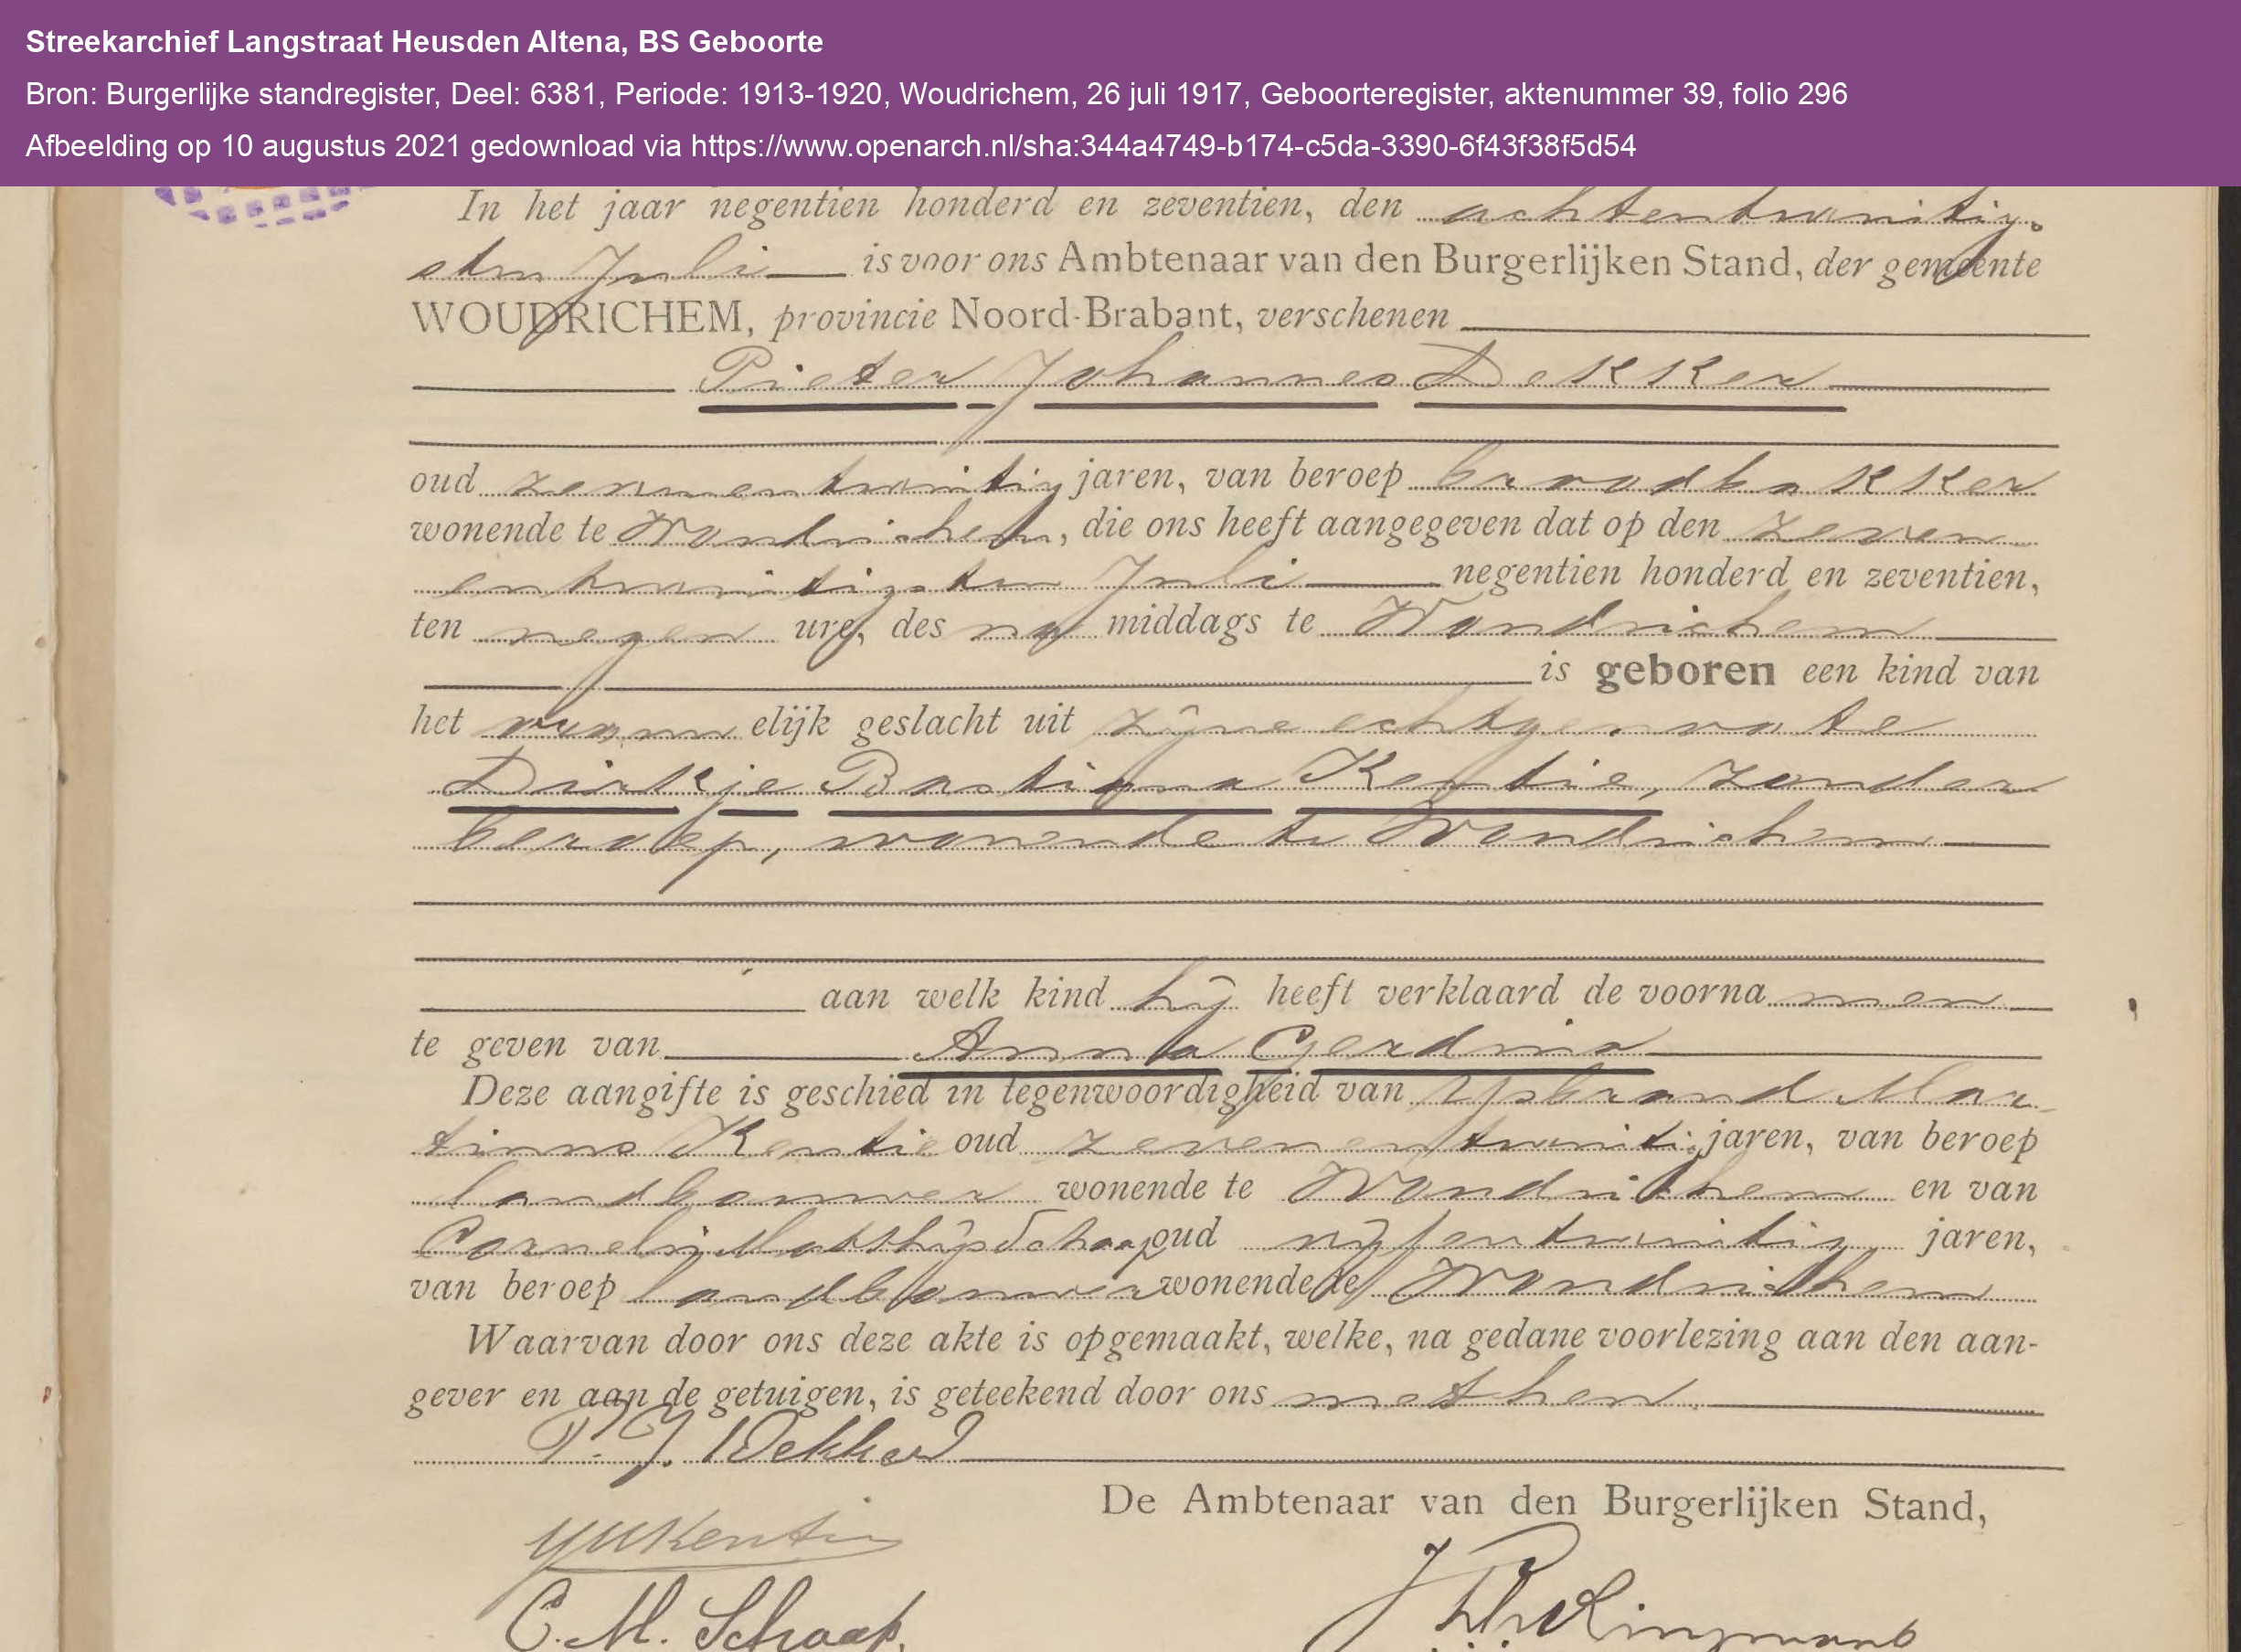 Streekarchief Langstraat Heusden Altena, BS Geboorte
Bron: Burgerlijke standregister, Deel: 6381, Periode: 1913-1920, Woudrichem, 26 juli 1917, Geboorteregister, aktenummer 39, folio 296
Afbeelding op 10 augustus 2021 gedownload via https://www.openarch.nl/sha:344a4749-b174-c5da-3390-6f43f38f5d54
In het jaar negentien honderd en zeventien, den achtentwintig-
sten Juli is voor ons Ambtenaar van den Burgerlijken Stand, der gemeente
WOUDRICHEM, provincie Noord-Brabant, verschenen
Pieter Johannes Dekker
oud zevenentwintig jaren, van beroep broodbakker
wonende te Woudrichem, die ons heeft aangegeven dat op den zeven
entwintigsten Juli negentien honderd en zeventien,
ten negen ure, des na middags te Woudrichem
is geboren een kind van
het vrouw elijk geslacht uit zijne echtgenoote
Dirkje Bastiana Kentie, zonder
beroep, wonende te Woudrichem
aan welk kind hij heeft verklaard de voorna men
te geven van Anna Gerdina
Deze aangifte is geschied in tegenwoordigheid van Ysbrand Mar-
tinus Kentie oud zevenentwintig jaren, van beroep
landbouwer wonende te Woudrichem en van
Cornelis Matthijs Schaap oud vijfentwintig jaren,
van beroep landbouwer wonende te Woudrichem
Waarvan door ons deze akte is opgemaakt, welke, na gedane voorlezing aan den aan-
gever en aan de getuigen, is geteekend door ons met hen.
P. J. Dekker
De Ambtenaar van den Burgerlijken Stand,
YMKentie
C. M. Schaap.